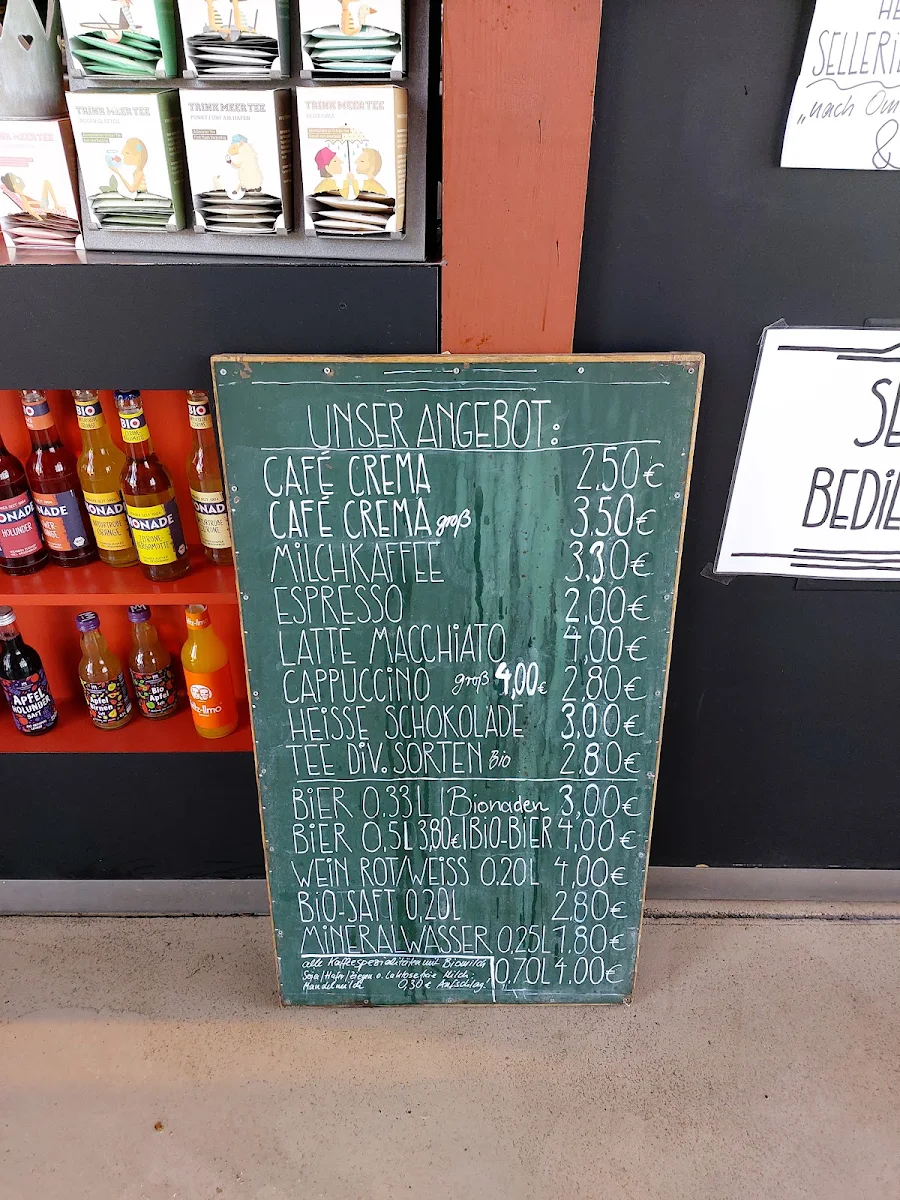 TRINK MEER TEE
TRINK MEER TEE
TRINK MEER TEE
HE
SELLERI
„nach Om
&
SE
BEDIE
UNSER ANGEBOT:
CAFÉ CREMA 2,50€
CAFÉ CREMA groß 3,50€
MILCHKAFFEE 3,30€
ESPRESSO 2,00€
LATTE MACCHIATO 4,00€
CAPPUCCINO groß 4,00€ 2,80€
HEISSE SCHOKOLADE 3,00€
TEE DIV. SORTEN Bio 2,80€
BIER 0,33L | Bionaden 3,00€
BIER 0,5L 3,80€ | BIO-BIER 4,00€
WEIN ROT/WEISS 0,20L 4,00€
BIO-SAFT 0,20L 2,80€
MINERALWASSER 0,25L 1,80€
0,70L 4,00€
alle Kaffeespezialitäten mit Biomilch
Soja/Hafer/Ziegen o. Laktosefreie Milch;
Mandelmilch 0,30€ Aufschlag!
BIO
BIO
BIO
BIO
ONADE
HOLUNDER
ADE
ONADE
ORANGE
ONADE
ZITRONE-
BERGAMOTTE
ONADE
APFEL
HOLUNDER
SAFT
Apfel
Birnen
Bio
Apfel